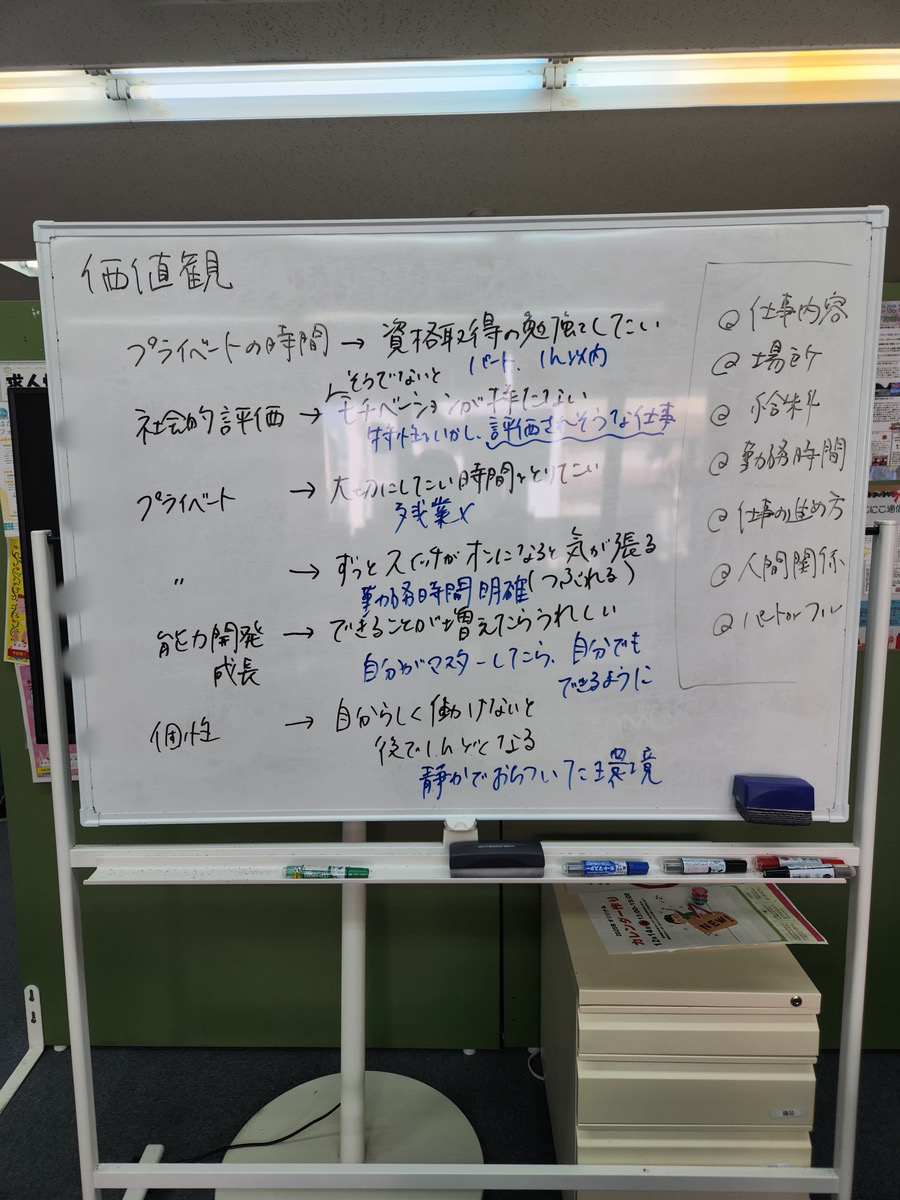 価値観
プライベートの時間 → 資格取得の勉強をしたい
パート、1h以内
そうでないと
社会的評価 → モチベーションが持たない
特性をいかし、評価されそうな仕事
プライベート → 大切にしたい時間をとりたい
残業×
〃 → ずっとスイッチがオンになると気が張る
勤務時間明確(つぶれる)
能力開発 → できることが増えたらうれしい
成長
自分がマスターしたら、自分でも
できるように
個性 → 自分らしく働けないと
後でしんどくなる
静かでおちついた環境
@仕事内容
@場所
@給料
@勤務時間
@仕事の進め方
@人間関係
@パートorフル
求人
にこ通信
カレンダー作り
12/14
13:00-15:00
備品